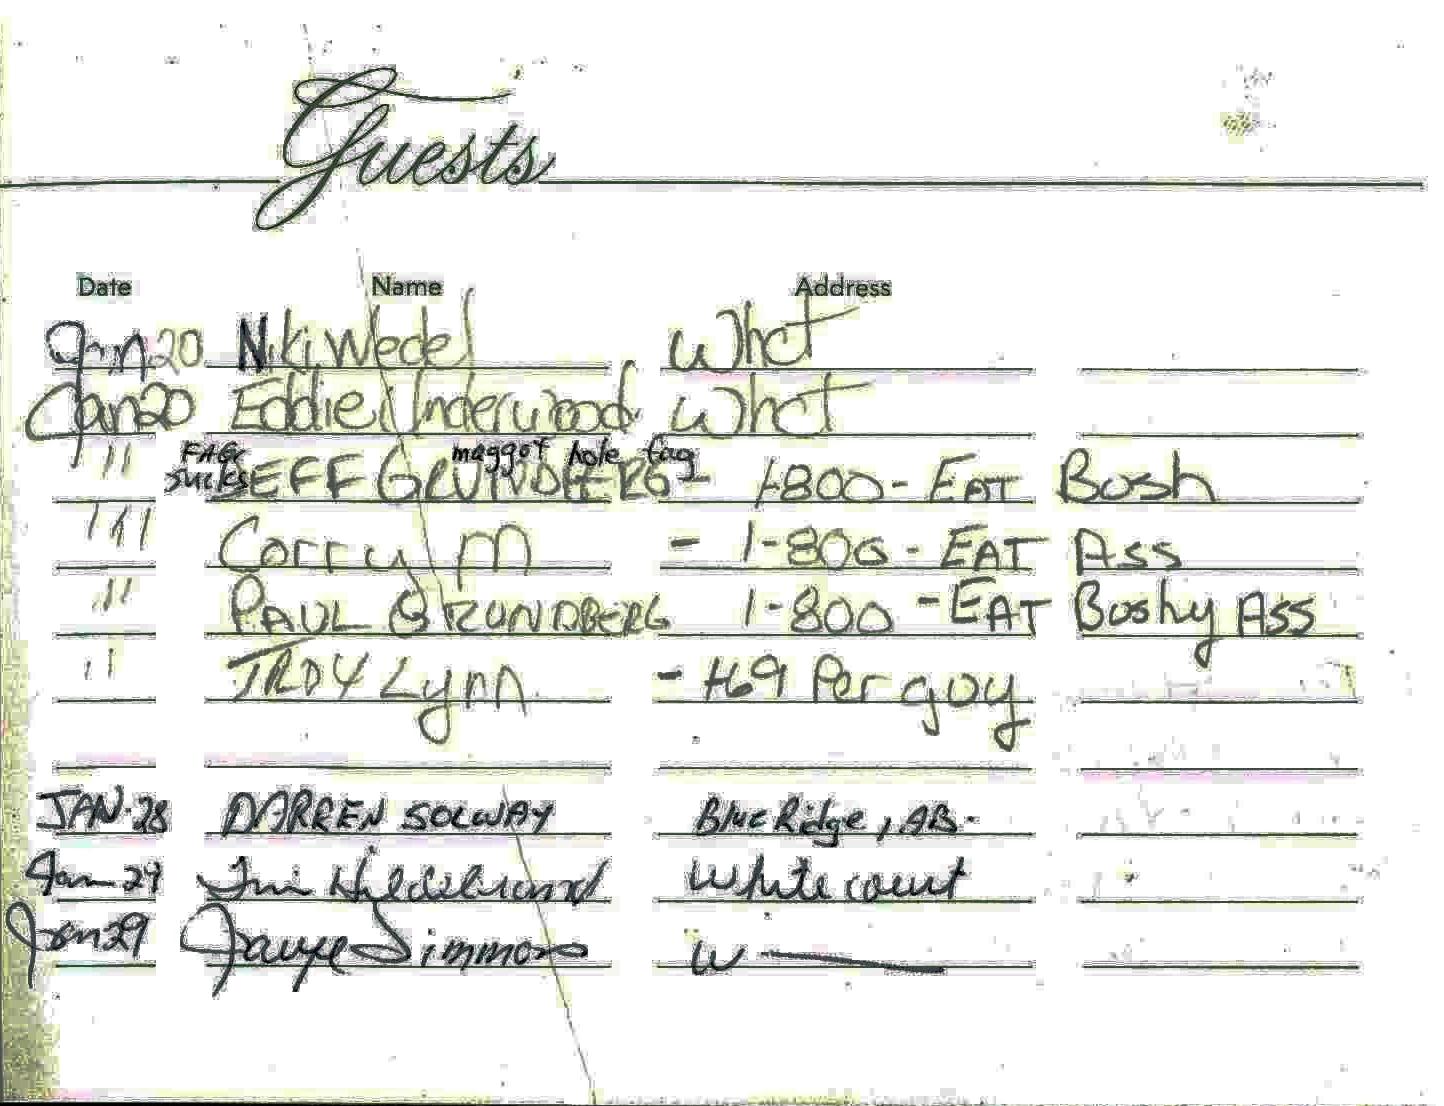 Guests
Date Name Address
Jan 20 Niki Wedel Whct
Jan 20 Eddie Underwood Whct
maggot hole fag
sucks
" JEFF GRUNDBERG - 1-800-EAT Bush
"' Corry M - 1-800-EAT Ass
" PAUL GRUNDBERG 1-800-EAT Bushy Ass
" TROY Lynn - 469 Per guy
JAN. 28 DARREN SOLWAY Blue Ridge, AB.
Jan 29 Jim Hildebrand Whitecourt
Jan 29 Simmons W